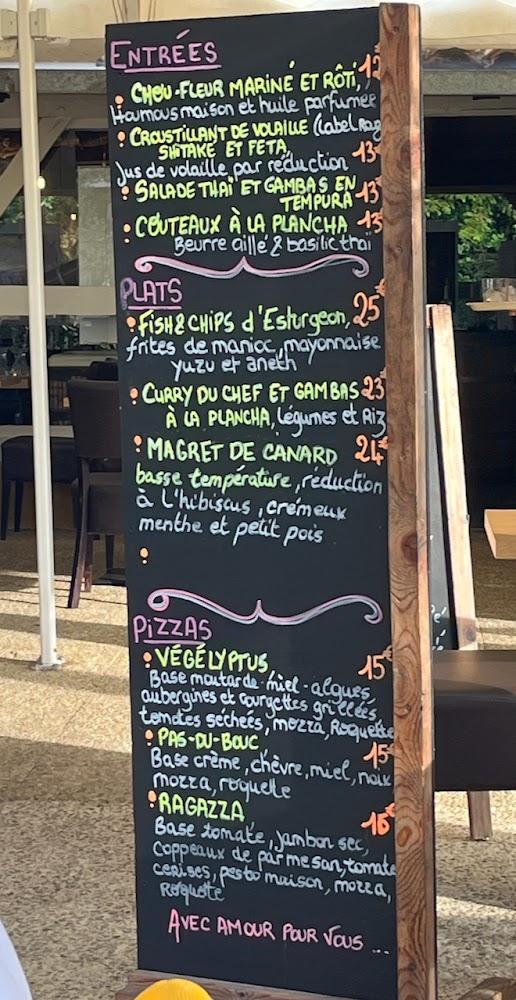 ENTRÉES
• CHOU-FLEUR MARINÉ ET RÔTI, 12
Houmous maison et huile parfumée
• CROUSTILLANT DE VOLAILLE (Label
SHITAKE ET FETA,
Jus de volaille par réduction 13€
• SALADE THAÏ ET GAMBAS EN 13€
TEMPURA
• COUTEAUX À LA PLANCHA 13€
Beurre aillé & basilic thaï
PLATS
• FISH & CHIPS d'Esturgeon, 25€
frites de manioc, mayonnaise
yuzu et aneth
• CURRY DU CHEF ET GAMBAS 23€
À LA PLANCHA, Légumes et Riz
• MAGRET DE CANARD 24€
basse température, réduction
à l'hibiscus, crémeux
menthe et petit pois
PIZZAS
• VÉGÉLYPTUS 15€
Base moutarde-miel-algues,
aubergines et courgettes grillées,
tomates séchées, mozza, Roquette
• PAS-DU-BOUC 15€
Base crème, chèvre, miel, noix
mozza, roquette
• RAGAZZA 16€
Base tomate, jambon sec,
Coppeaux de parmesan, tomate
cerises, pesto maison, mozza,
Roquette
AVEC AMOUR POUR VOUS ...